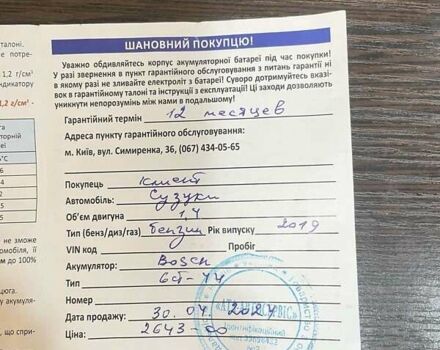 талоні.
не потре-
1,2 г/см³
індикатору
1,2 г/см³ -
°C
не зможе
автомобіля, її
ом до 100%
цюга.
у акумуля-
, що спри-
ШАНОВНИЙ ПОКУПЦЮ!
Уважно обдивляйтесь корпус акумуляторної батареї під час покупки!
У разі звернення в пункт гарантійного обслуговування з питань гарантії ні
в якому разі не зливайте електроліт з батареї! Суворо дотримуйтесь вказі-
вок в гарантійному талоні та інструкції з експлуатації! Ці заходи дозволяють
уникнути непорозумінь між нами в подальшому!
Гарантійний термін 12 месяцев
Адреса пункту гарантійного обслуговування:
м. Київ, вул. Симиренка, 36, (067) 434-05-65
Покупець Клиент
Автомобіль: Сузуки
Об'єм двигуна 1,4
Тип (бенз/диз/газ) бензин Рік випуску 2019
VIN код Пробіг
Акумулятор: Bosch
Тип 6ст-44
Номер
Дата продажу: 30.04.2024
Ціна: 2643-00